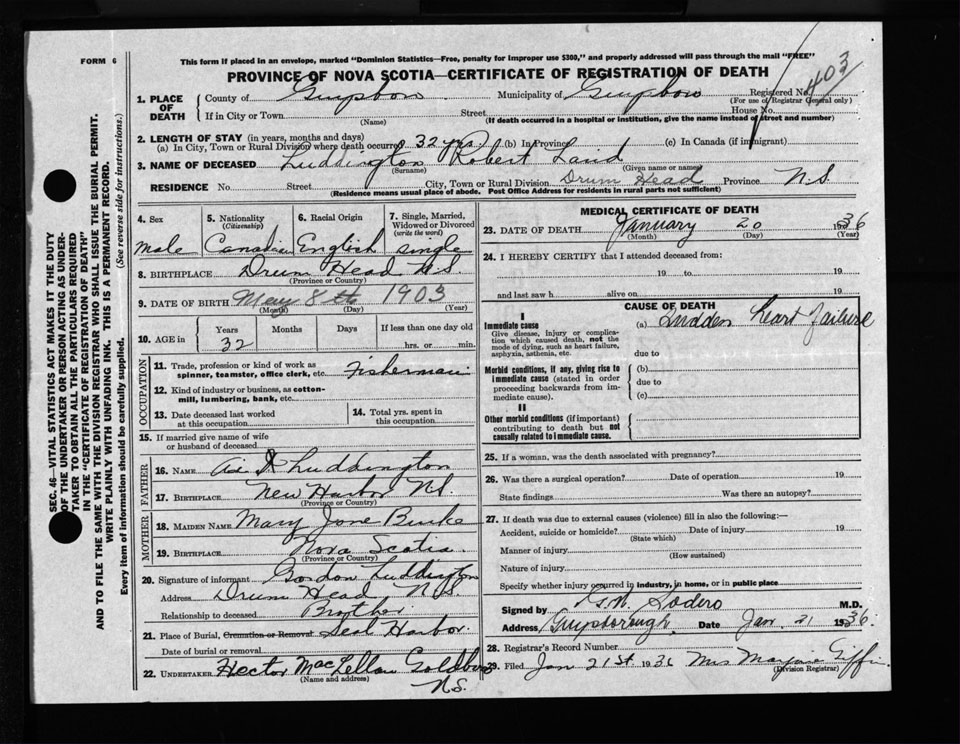 FORM 6
This form if placed in an envelope, marked "Dominion Statistics—Free, penalty for improper use $300," and properly addressed will pass through the mail "FREE"
PROVINCE OF NOVA SCOTIA—CERTIFICATE OF REGISTRATION OF DEATH
403
1. PLACE OF DEATH
County of Guysboro Municipality of Guysboro Registered No.
(For use of Registrar General only)
If in City or Town Street House No.
(Name) (If death occurred in a hospital or institution, give the name instead of street and number)
2. LENGTH OF STAY (in years, months and days)
(a) In City, Town or Rural Division where death occurred 32 yrs (b) In Province (c) In Canada (if immigrant)
3. NAME OF DECEASED Luddington Robert Laird
(Surname) (Given name or names)
RESIDENCE No. Street City, Town or Rural Division Drum Head Province N.S.
(Residence means usual place of abode. Post Office Address for residents in rural parts not sufficient)
SEC. 46—VITAL STATISTICS ACT MAKES IT THE DUTY
OF THE UNDERTAKER OR PERSON ACTING AS UNDER-
TAKER TO OBTAIN ALL THE PARTICULARS REQUIRED
IN THE "CERTIFICATE OF REGISTRATION OF DEATH"
AND TO FILE THE SAME WITH THE DIVISION REGISTRAR WHO SHALL ISSUE THE BURIAL PERMIT.
WRITE PLAINLY WITH UNFADING INK. THIS IS A PERMANENT RECORD.
Every item of information should be carefully supplied. (See reverse side for instructions.)
4. Sex
male
5. Nationality
(Citizenship)
Canadian
6. Racial Origin
English
7. Single, Married,
Widowed or Divorced
(write the word)
single
8. BIRTHPLACE Drum Head N.S.
(Province or Country)
9. DATE OF BIRTH May 8th 1903
(Month) (Day) (Year)
10. AGE in
Years Months Days If less than one day old
32 hrs. or min.
OCCUPATION
11. Trade, profession or kind of work as
spinner, teamster, office clerk, etc. Fisherman
12. Kind of industry or business, as cotton-
mill, lumbering, bank, etc.
13. Date deceased last worked
at this occupation
14. Total yrs. spent in
this occupation
15. If married give name of wife
or husband of deceased
FATHER
16. NAME Luddington
17. BIRTHPLACE New Harbor N.S.
(Province or Country)
MOTHER
18. MAIDEN NAME Mary Jane Burke
19. BIRTHPLACE Nova Scotia
(Province or Country)
20. Signature of informant Gordon Luddington
Address Drum Head N.S.
Relationship to deceased Brother
21. Place of Burial, Cremation or Removal Seal Harbor
Date of burial or removal
22. UNDERTAKER Hector MacLellan Goldboro
(Name and address) N.S.
MEDICAL CERTIFICATE OF DEATH
23. DATE OF DEATH January 20 1936
(Month) (Day) (Year)
24. I HEREBY CERTIFY that I attended deceased from:
19 to 19
and last saw h alive on 19
CAUSE OF DEATH
I
Immediate cause
Give disease, injury or complica-
tion which caused death, not the
mode of dying, such as heart failure,
asphyxia, asthenia, etc.
(a) Sudden Heart Failure
due to
Morbid conditions, if any, giving rise to
immediate cause (stated in order
proceeding backwards from im-
mediate cause).
(b)
due to
(c)
II
Other morbid conditions (if important)
contributing to death but not
causally related to immediate cause.
25. If a woman, was the death associated with pregnancy?
26. Was there a surgical operation? Date of operation 19
State findings Was there an autopsy?
27. If death was due to external causes (violence) fill in also the following:—
Accident, suicide or homicide? Date of injury 19
(State which)
Manner of injury
(How sustained)
Nature of injury
Specify whether injury occurred in industry, in home, or in public place
Signed by G.N. Sodero M.D.
Address Guysborough. Date Jan 21 1936.
28. Registrar's Record Number
29. Filed Jan 21st 1936 Mrs Marjorie Giffin
(Division Registrar)